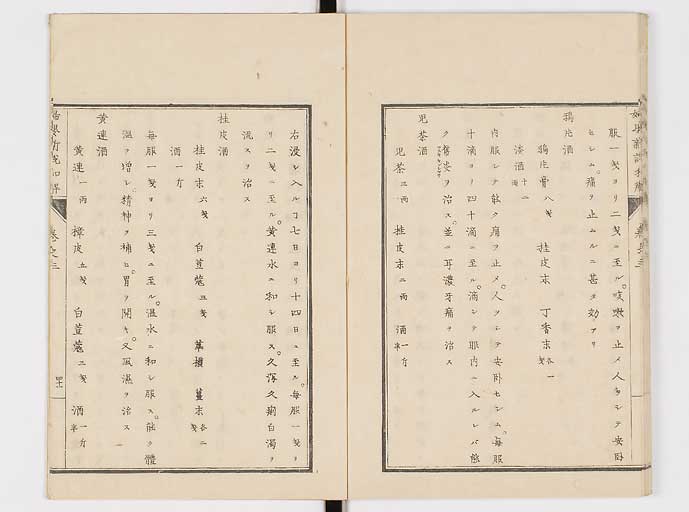 服一戔ヨリ二戔ニ至ル。咳嗽ヲ止メ人ヲシテ安臥
セシム。痛ヲ止ムルニ甚タ効アリ
鴉片酒
鴉片膏 八戔 桂皮末 丁香末 各一戔
湊酒 十二両
内服シテ能ク痛ヲ止メ。人ヲシテ安卧セシム。毎服
十滴ヨリ四十滴ニ至ル。滴シテ眼内ニ入ルレバ能
ク ヲ治ス。並ニ耳膿牙痛ヲ治ス
児茶酒
児茶 二両 桂皮末 二両 酒 一斤半
右浸シ入ルヿ七日ヨリ十四日ニ至ル。毎服一戔ヨ
リ二戔ニ至ル。黄連水ニ和シ服ス。久瀉久痢白濁ヲ
流スヲ治ス
桂皮酒
桂皮末 六戔 白荳蔲 五戔 蓽撥 薑末 各二戔
酒 一斤
毎服一戔ヨリ三戔ニ至ル。温水ニ和シ服ス。能ク體
温ヲ増シ。精神ヲ補ヒ。胃ヲ開キ。又風濕ヲ治ス
黄連酒
黄連 一両 橙皮 五戔 白荳蔲 二戔 酒 一斤半